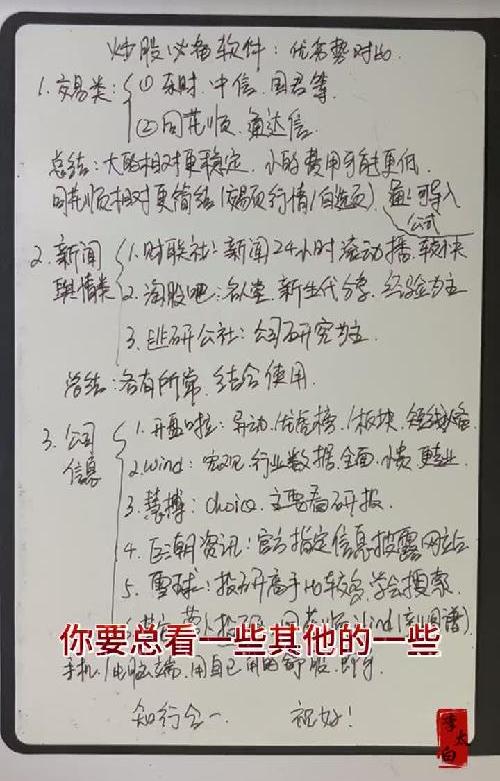 炒股必备软件：优劣势对比
1.交易类：①东财.中信.国君等
②同花顺.通达信.
总结：大的相对更稳定.小的费用可能更低.
同花顺相对更简洁(交易页行情/自选页).通可导入
公式
2.新闻舆情类
1.财联社：新闻24小时滚动播.较快
2.淘股吧：名人堂.新生代分享.经验为主
3.韭研公社：公司研究为主.
总结：各有所常.结合使用.
3.公司信息
1.开盘啦：异动.龙虎榜.板块.短线必备
2.wind：宏观.行业数据.全面.小贵.更专业.
3.慧博：choice.主要看研报.
4.巨潮资讯：官方指定信息披露网站
5.雪球：投研高手比较多.学会搜索.
你要总看一些其他的一些
手机/电脑端.用自己用的舒服.即可.
知行合一.
祝好！
李太白